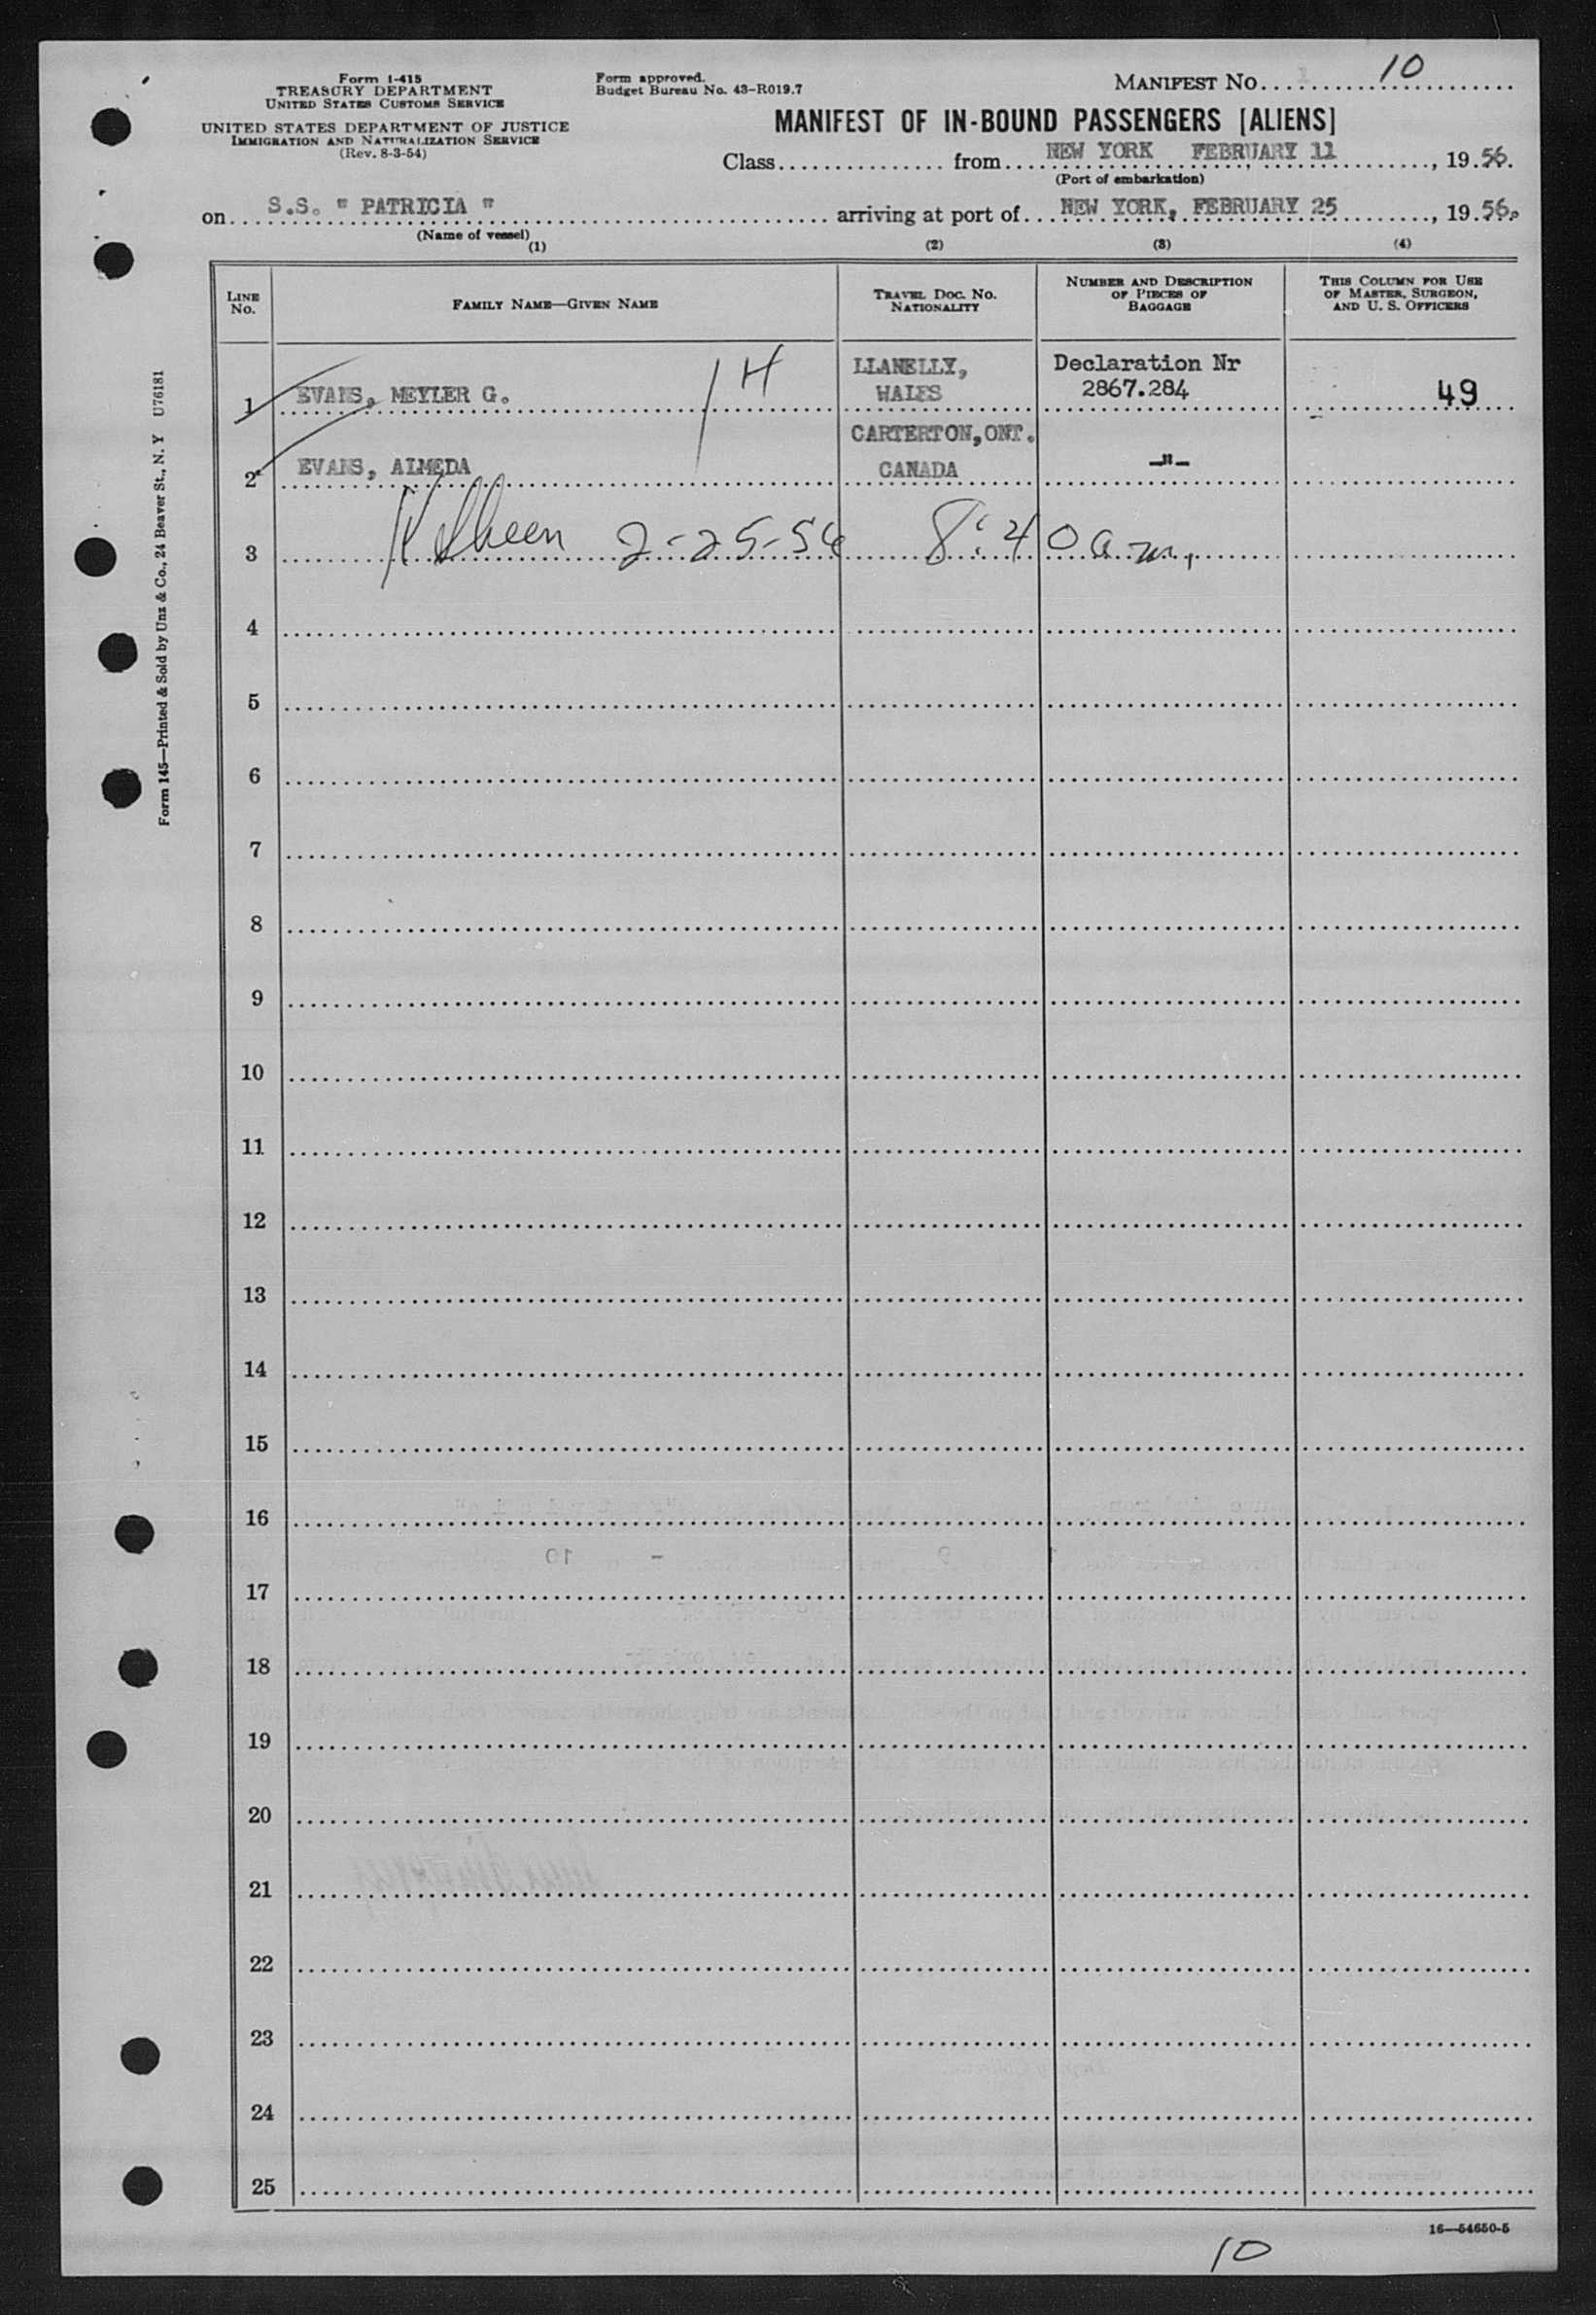 Form I-415
TREASURY DEPARTMENT
UNITED STATES CUSTOMS SERVICE
UNITED STATES DEPARTMENT OF JUSTICE
IMMIGRATION AND NATURALIZATION SERVICE
(Rev. 8-3-54)
Form approved.
Budget Bureau No. 43-R019.7
MANIFEST NO. 10
MANIFEST OF IN-BOUND PASSENGERS [ALIENS]
Class from NEW YORK FEBRUARY 11, 19 56.
(Port of embarkation)
on S.S. " PATRICIA " arriving at port of NEW YORK, FEBRUARY 25, 19 56.
(Name of vessel)
(1) (2) (3) (4)
LINE NO.
FAMILY NAME—GIVEN NAME
TRAVEL DOC. NO. NATIONALITY
NUMBER AND DESCRIPTION OF PIECES OF BAGGAGE
THIS COLUMN FOR USE OF MASTER, SURGEON, AND U. S. OFFICERS
1 EVANS, MEYLER G. LLANELLY, WALES Declaration Nr 2867.284 49
14
2 EVANS, ALMEDA CARTERTON, ONT. CANADA -"-
3 2-25-56 8:40 a.m.
4
5
6
7
8
9
10
11
12
13
14
15
16
17
18
19
20
21
22
23
24
25
16—54650-5
10
Form 145—Printed & Sold by Unz & Co., 24 Beaver St., N. Y U76181